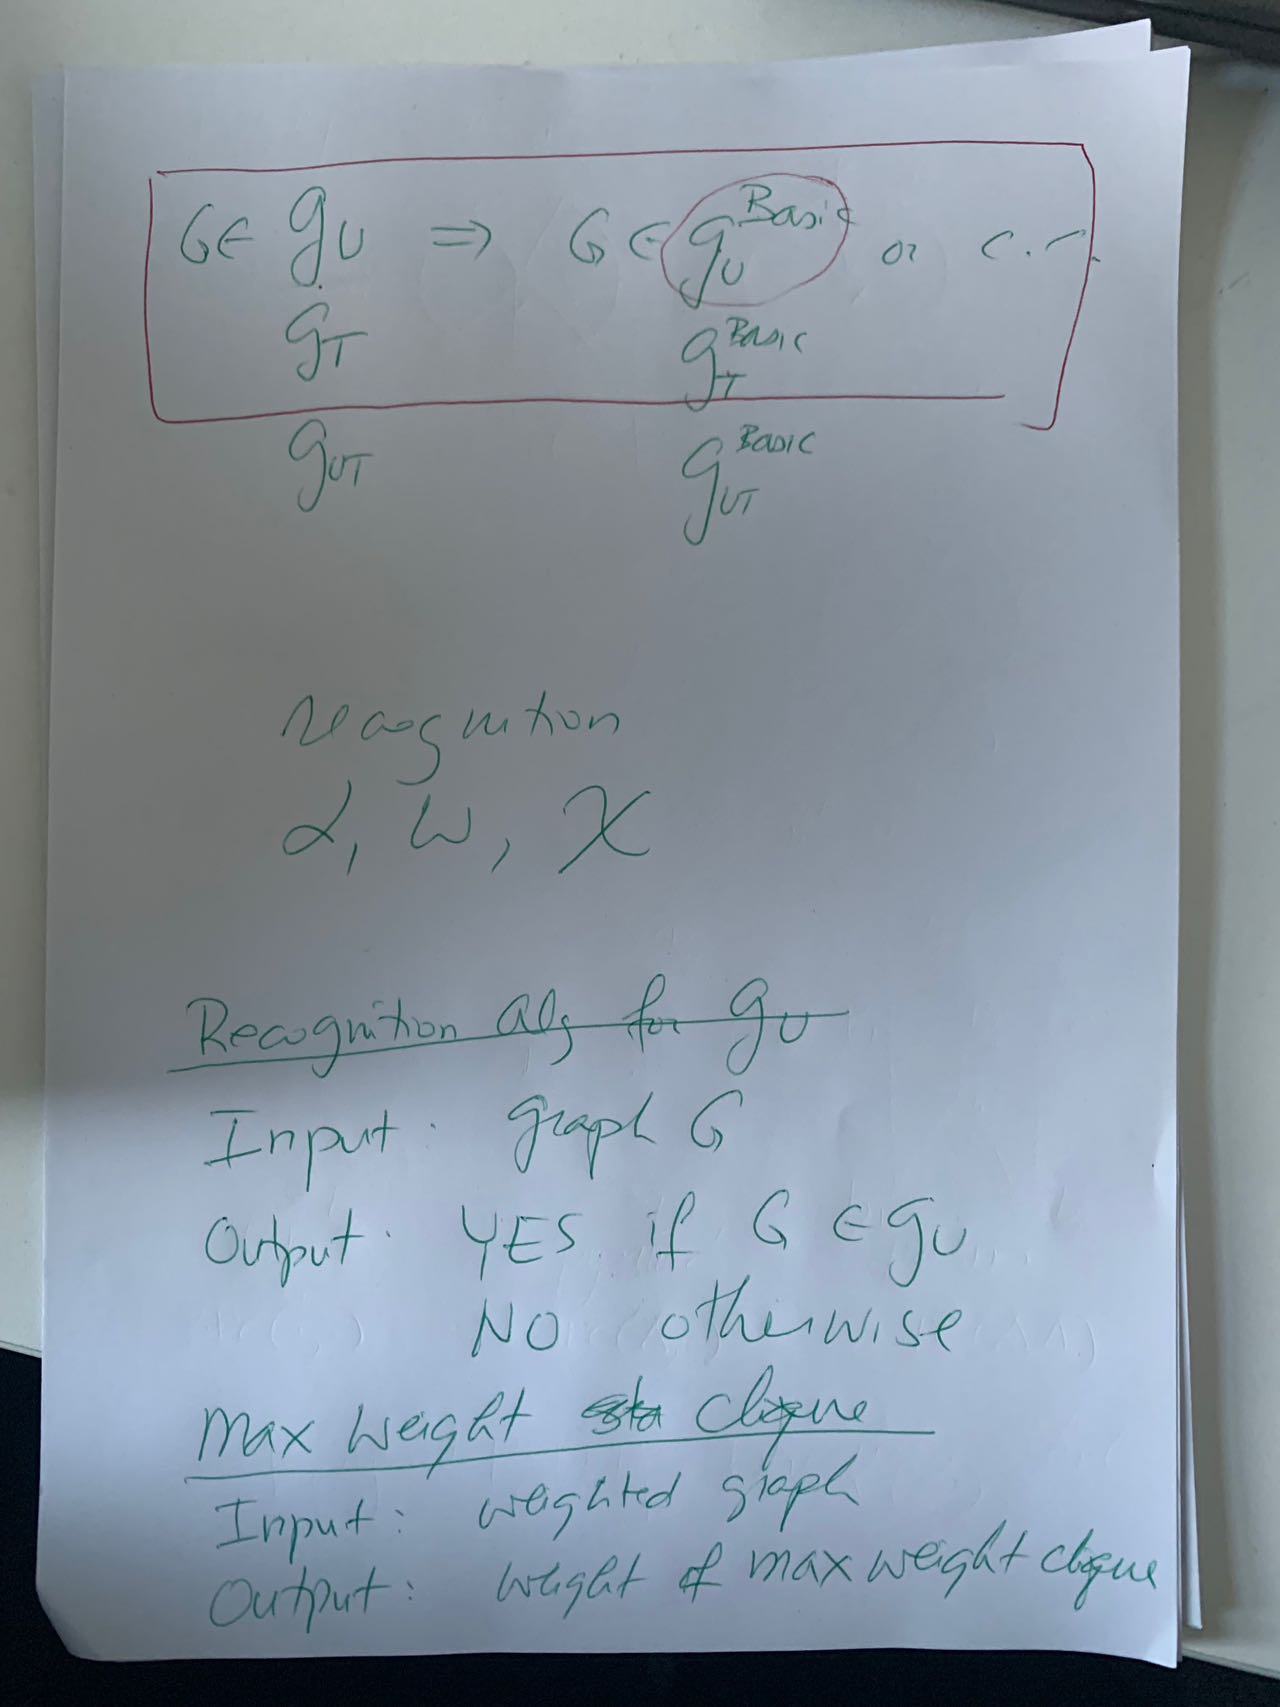 G ∈ 𝒢_U ⇒ G ∈ 𝒢_U^Basic or c.c.
𝒢_T 𝒢_T^BASIC
𝒢_UT 𝒢_UT^BASIC
recognition
α, ω, χ
Recognition alg for 𝒢_U
Input: graph G
Output: YES if G ∈ 𝒢_U
NO otherwise
max weight clique
Input: weighted graph
Output: weight of max weight clique